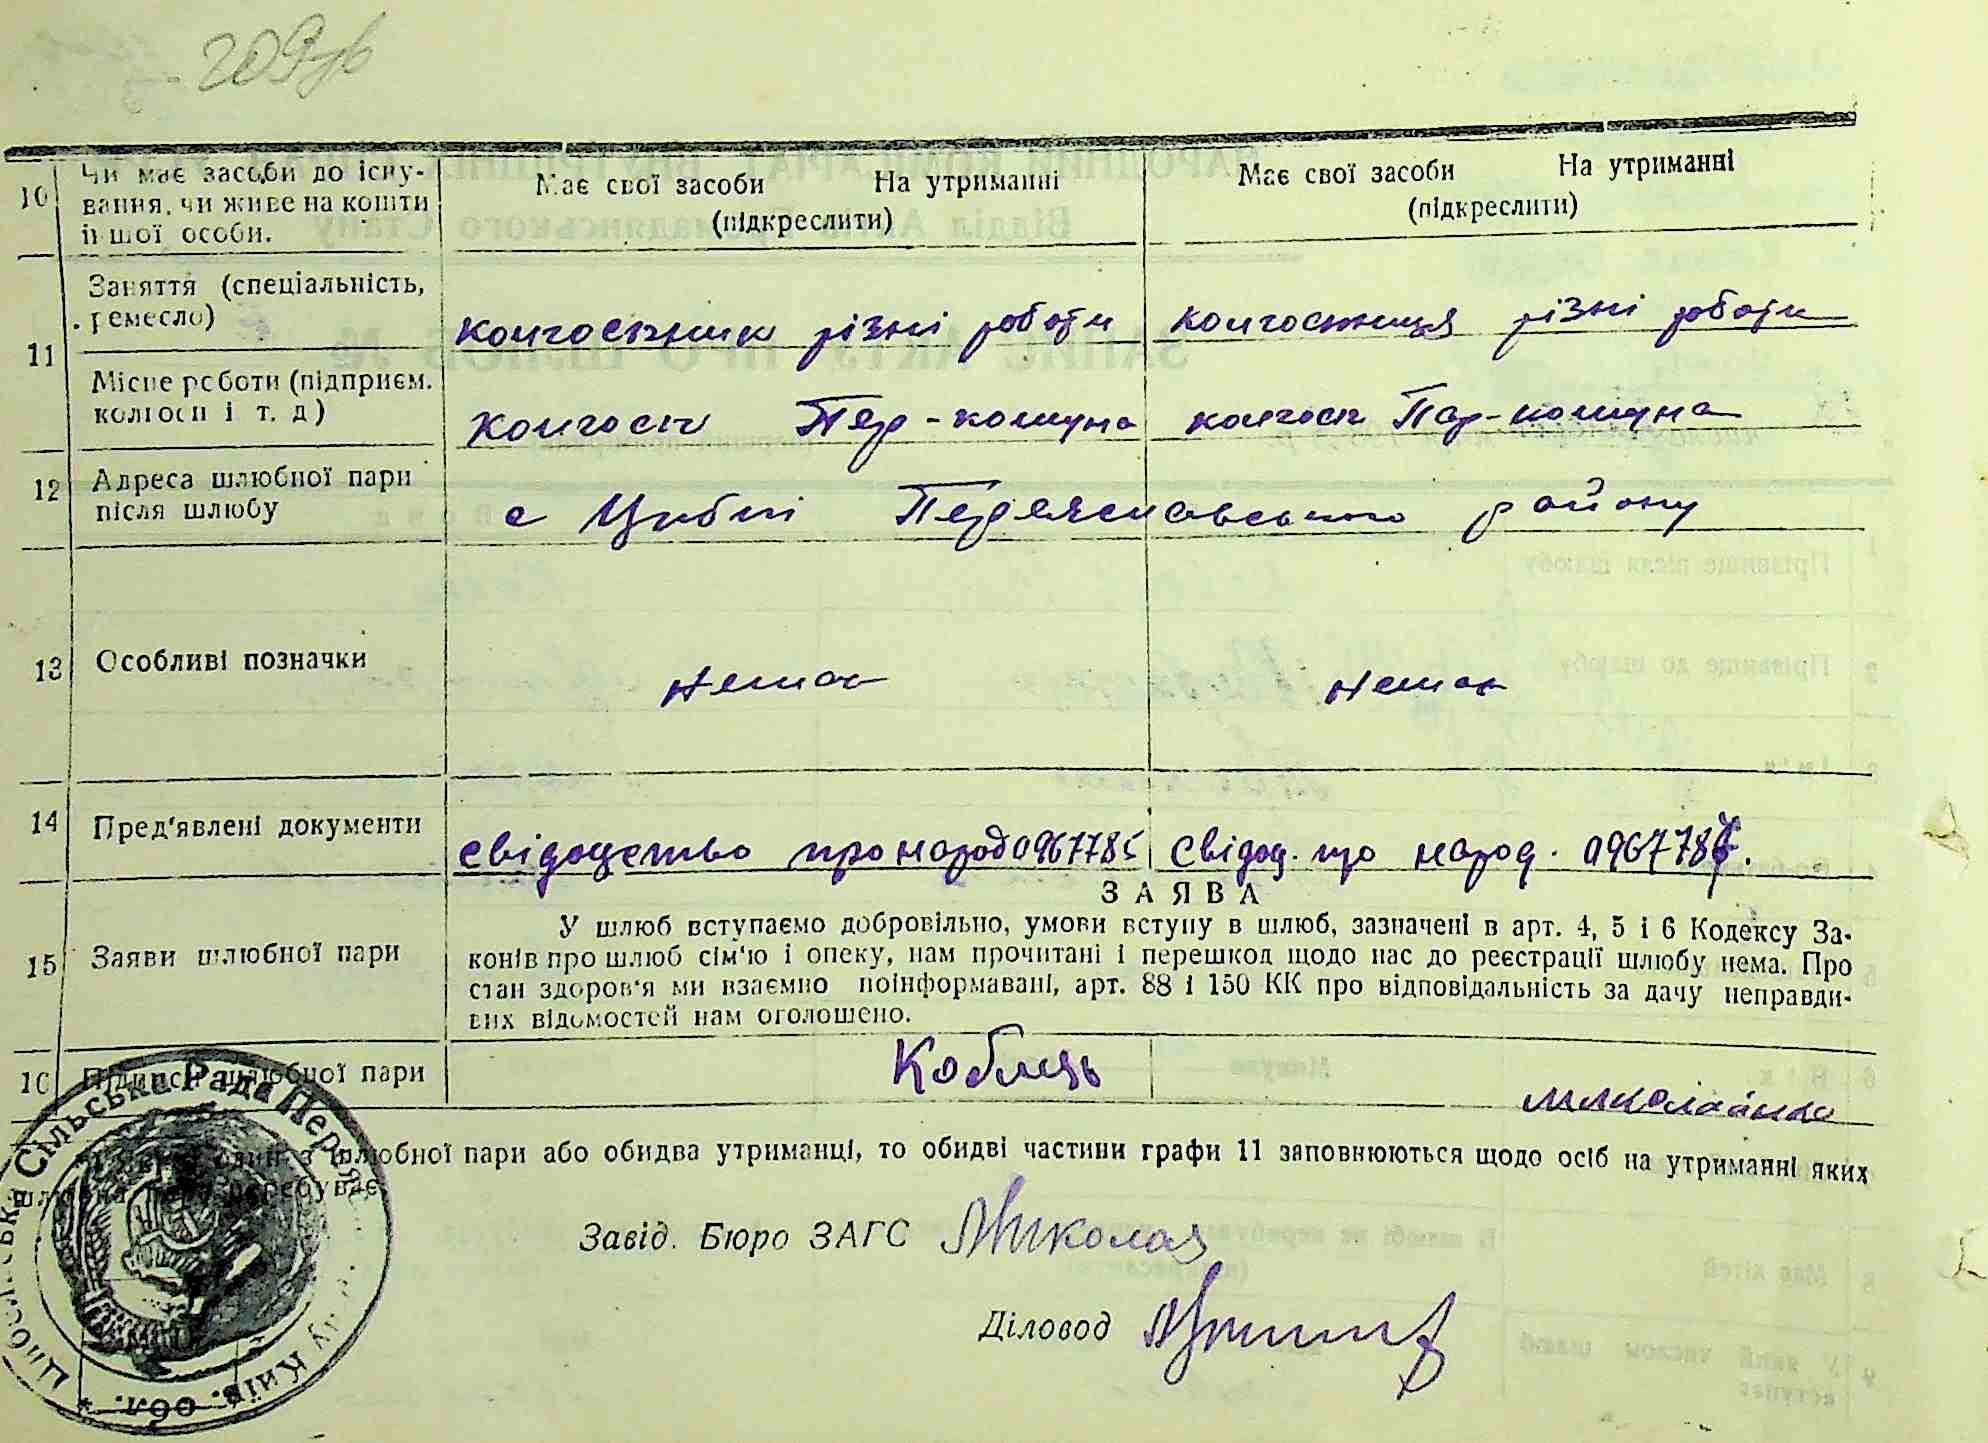 209зв
10 Чи має засоби до існу-
вання, чи живе на кошти
іншої особи.
Має свої засоби На утриманні
(підкреслити)
Має свої засоби На утриманні
(підкреслити)
11 Заняття (спеціальність,
ремесло)
колгоспник різні роботи
колгоспниця різні роботи
Місце роботи (підприєм.
колгосп і т. д)
колгосп Пар-комуна
колгосп Пар-комуна
12 Адреса шлюбної пари
після шлюбу
с Циблі Переяславського району
13 Особливі позначки
немає
немає
14 Пред'явлені документи
свідоцтво про народ 0967785
Свідоц. про народ. 096778
ЗАЯВА
15 Заяви шлюбної пари
У шлюб вступаємо добровільно, умови вступу в шлюб, зазначені в арт. 4, 5 і 6 Кодексу За-
конів про шлюб сім'ю і опеку, нам прочитані і перешкод щодо нас до реєстрації шлюбу нема. Про
стан здоров'я ми взаємно поінформавані, арт. 88 і 150 КК про відповідальність за дачу неправди-
вих відомостей нам оголошено.
16 Підписи шлюбної пари
Коблиць
миколаєнко
один з шлюбної пари або обидва утриманці, то обидві частини графи 11 заповнюються щодо осіб на утриманні яких
шлюбна пара перебуває
Завід. Бюро ЗАГС Миколая
Діловод
Сільська Рада Київ. обл.